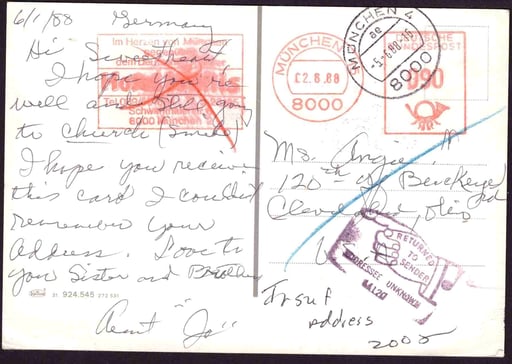 6/1/88 Germany
Hi Sweetheart
I hope you're
well and still going
to church (Smile)
I hope you receive
this card I couldn't
remember your
Address. Love to
you Sister and Brother
Aunt "Jo"
21 924.545
Im Herzen von München
8000 München
MÜNCHEN
02.8.88
8000
MÜNCHEN 4
-5.-6.88-16
8000
DEUTSCHE
BUNDESPOST
090
Ms. Angie
120th Buckeye Rd
Cleveland, Ohio
RETURNED
TO
SENDER
ADDRESSEE UNKNOWN
Insuf
address